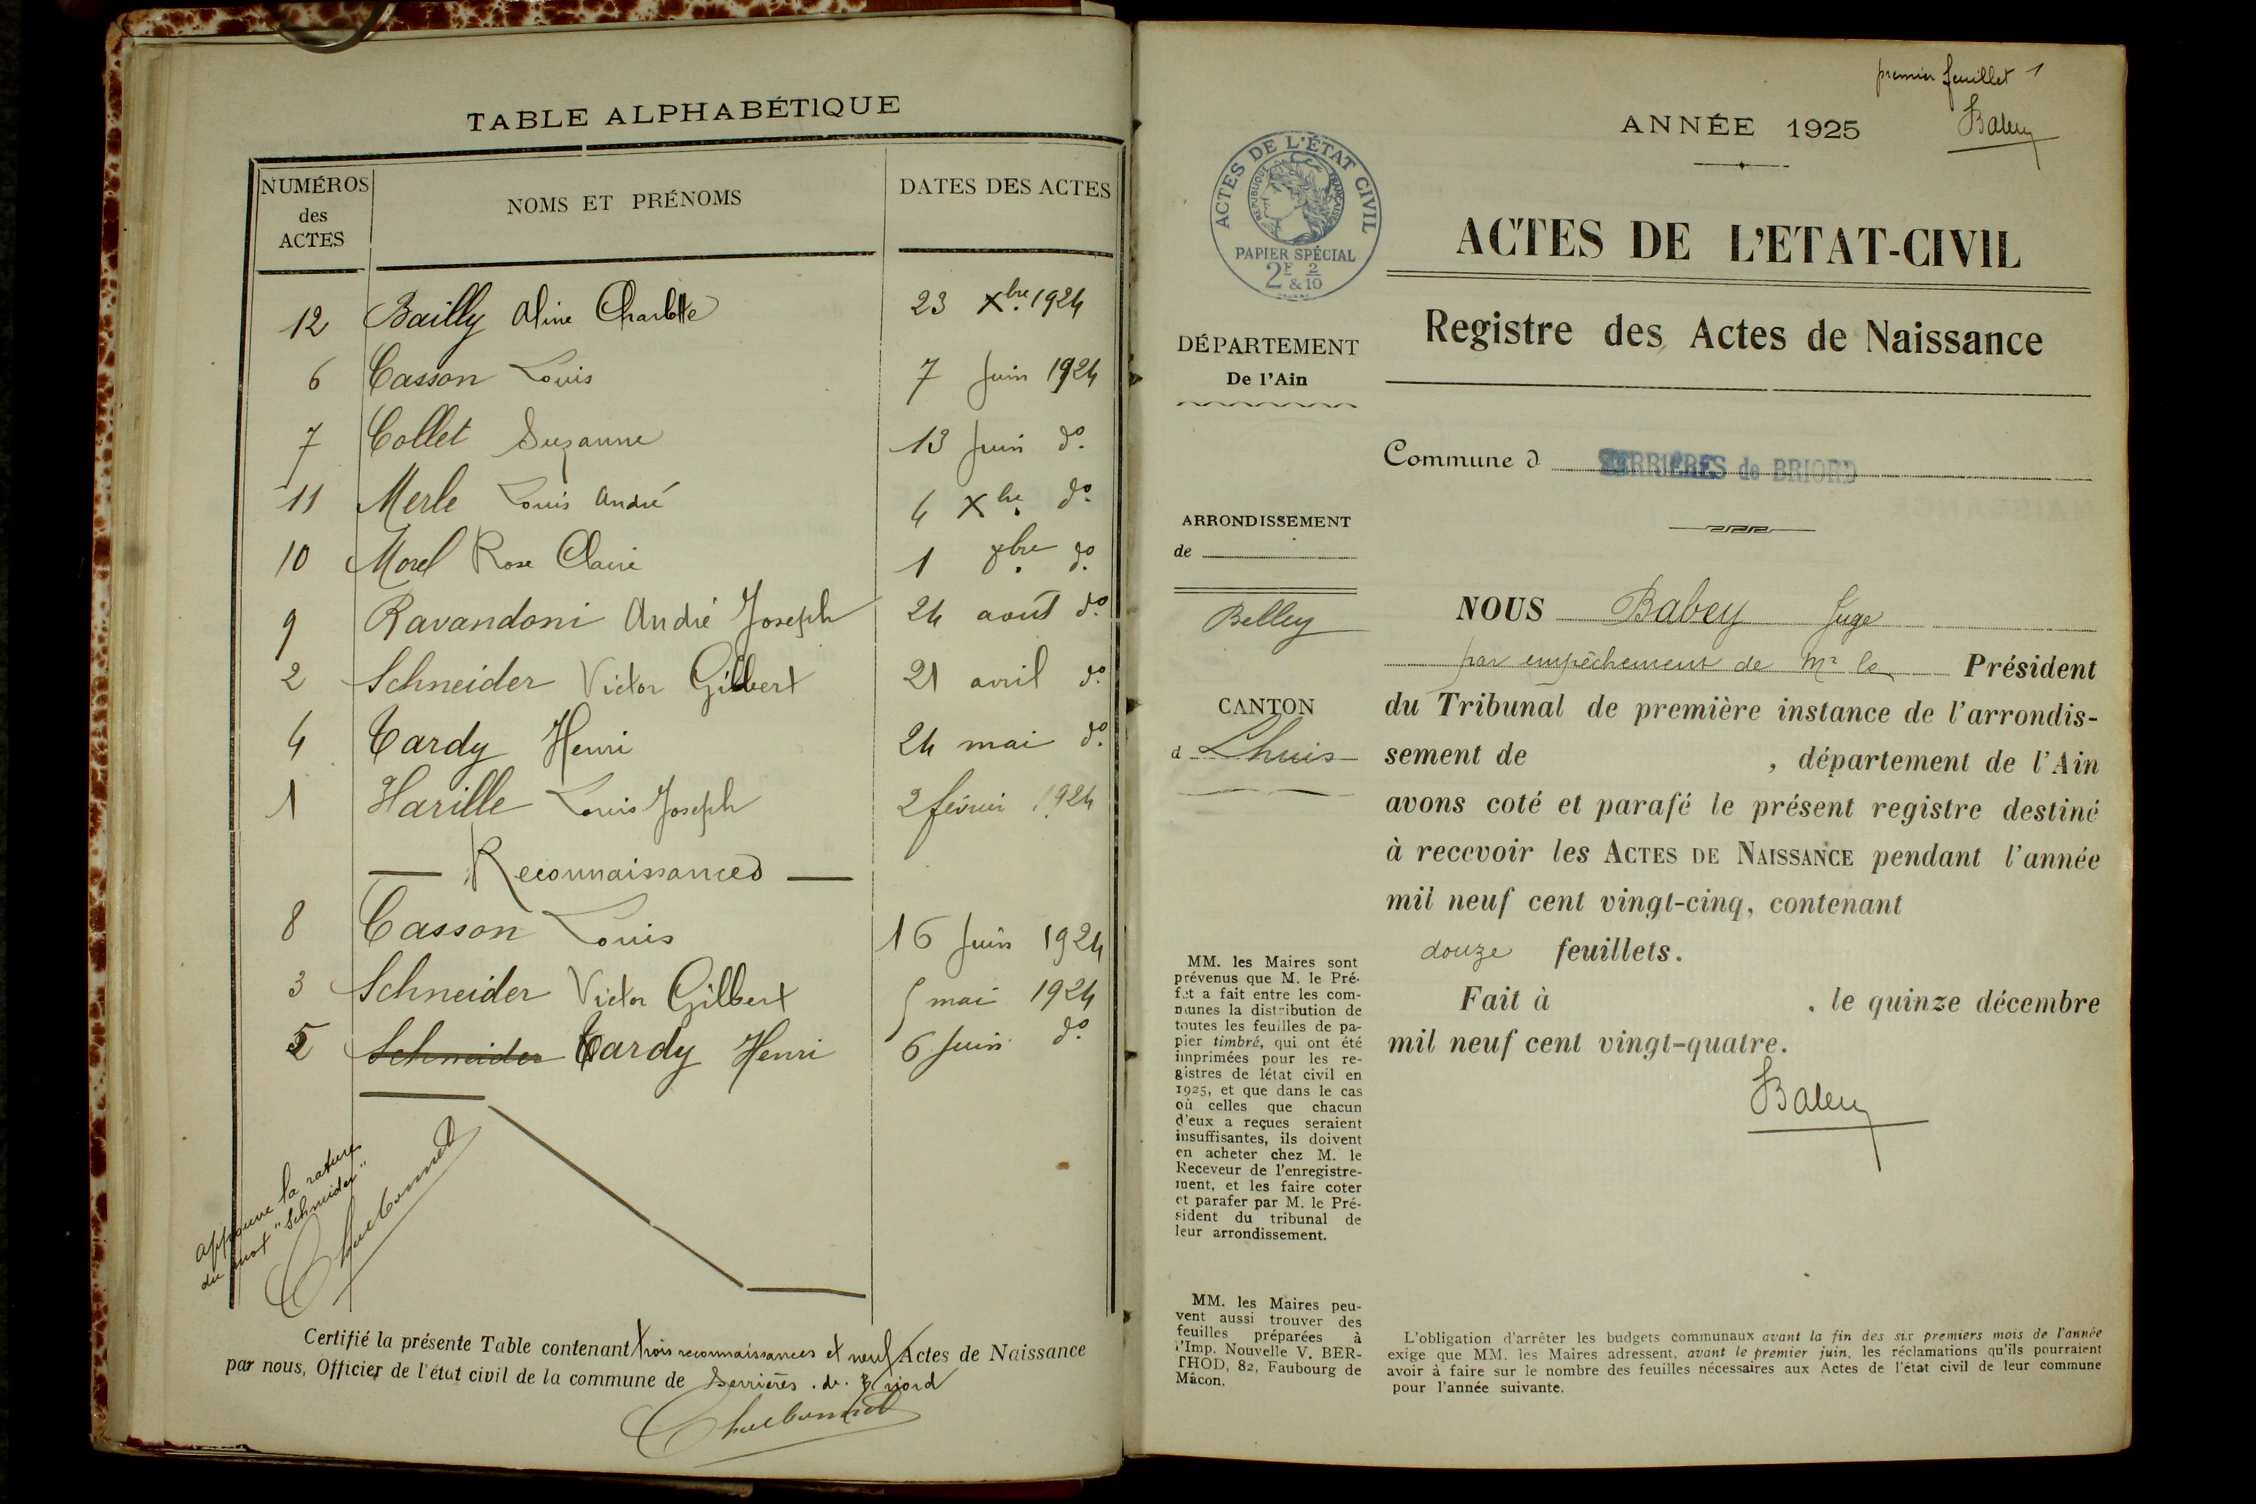 TABLE ALPHABÉTIQUE
NUMÉROS
des
ACTES
NOMS ET PRÉNOMS
DATES DES ACTES
12 Bailly Aline Charlotte 23 Xbre 1924
6 Casson Louis 7 Juin 1924
7 Collet Suzanne 13 Juin do
11 Merle Louis André 4 Xbre do
10 Morel Rose Claire 1 8bre do
9 Ravandoni André Joseph 24 août do
2 Schneider Victor Gilbert 21 avril do
4 Tardy Henri 24 mai do
1 Harille Louis Joseph 2 février 1924
— Reconnaissances —
8 Casson Louis 16 Juin 1924
3 Schneider Victor Gilbert 5 mai 1924
5 Schneider Tardy Henri 6 Juin do
approuvé la rature
du mot "Schneider"
Certifié la présente Table contenant trois reconnaissances et neuf Actes de Naissance
par nous, Officier de l'état civil de la commune de Serrières-de-Briord
premier feuillet 1
Babey
ANNÉE 1925
ACTES DE L'ÉTAT CIVIL
RÉPUBLIQUE FRANÇAISE
PAPIER SPÉCIAL
2F & 2/10
ACTES DE L'ETAT-CIVIL
Registre des Actes de Naissance
DÉPARTEMENT
De l'Ain
Commune d SERRIÈRES de BRIORD
ARRONDISSEMENT
de
Belley
CANTON
d Lhuis
NOUS Babey Juge
par empêchement de Mr le Président
du Tribunal de première instance de l'arrondis-
sement de , département de l'Ain
avons coté et parafé le présent registre destiné
à recevoir les ACTES DE NAISSANCE pendant l'année
mil neuf cent vingt-cinq, contenant
douze feuillets.
Fait à , le quinze décembre
mil neuf cent vingt-quatre.
Babey
MM. les Maires sont
prévenus que M. le Pré-
fet a fait entre les com-
munes la distribution de
toutes les feuilles de pa-
pier timbré, qui ont été
imprimées pour les re-
gistres de létat civil en
1925, et que dans le cas
où celles que chacun
d'eux a reçues seraient
insuffisantes, ils doivent
en acheter chez M. le
Receveur de l'enregistre-
ment, et les faire coter
et parafer par M. le Pré-
sident du tribunal de
leur arrondissement.
MM. les Maires peu-
vent aussi trouver des
feuilles préparées à
l'Imp. Nouvelle V. BER-
THOD, 82, Faubourg de
Mâcon.
L'obligation d'arrêter les budgets communaux avant la fin des six premiers mois de l'année
exige que MM. les Maires adressent, avant le premier juin, les réclamations qu'ils pourraient
avoir à faire sur le nombre des feuilles nécessaires aux Actes de l'état civil de leur commune
pour l'année suivante.